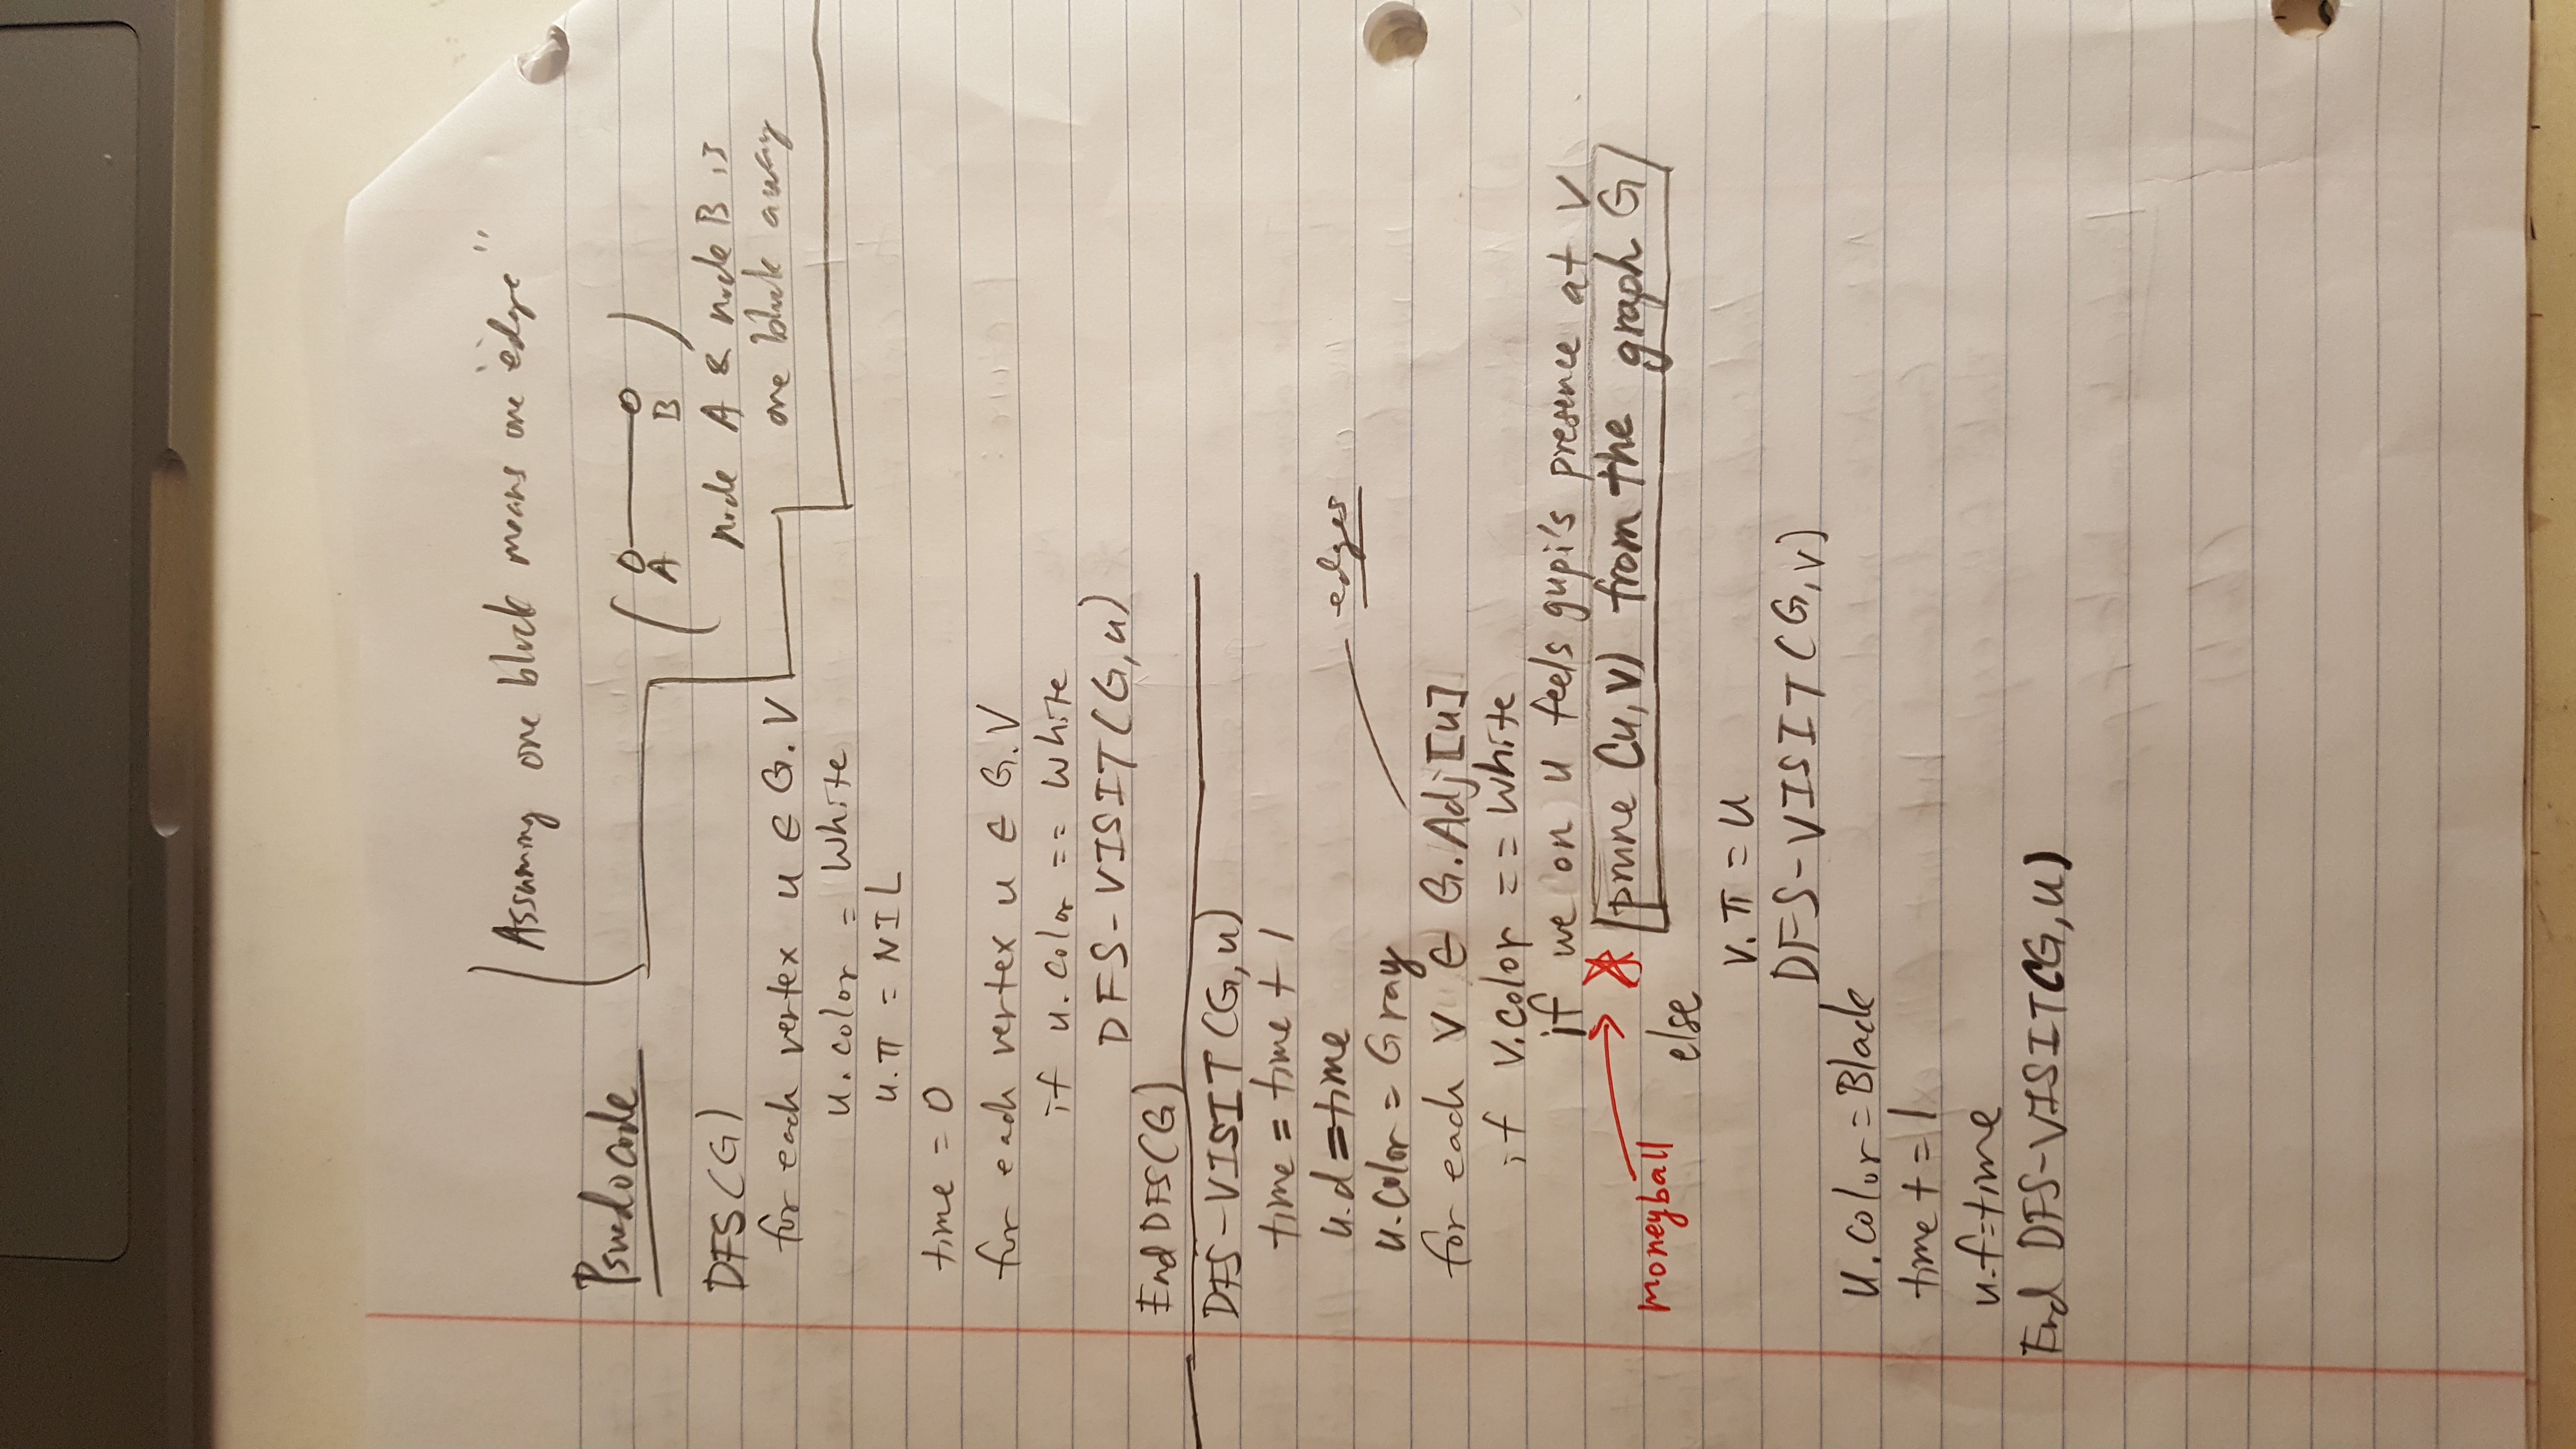 Assuming one block means one "edge"
Psuedocode
A B
node A & node B is
one block away
DFS(G)
for each vertex u ∈ G.V
u.color = White
u.π = NIL
time = 0
for each vertex u ∈ G.V
if u.color == White
DFS-VISIT(G,u)
End DFS(G)
DFS-VISIT(G,u)
time = time + 1
u.d = time
edges
u.color = Gray
for each v ∈ G.Adj[u]
if v.color == White
if we on u feels gupi's presence at v
moneyball
prune (u,v) from the graph G
else
v.π = u
DFS-VISIT(G,v)
u.color = Black
time += 1
u.f = time
End DFS-VISIT(G,u)